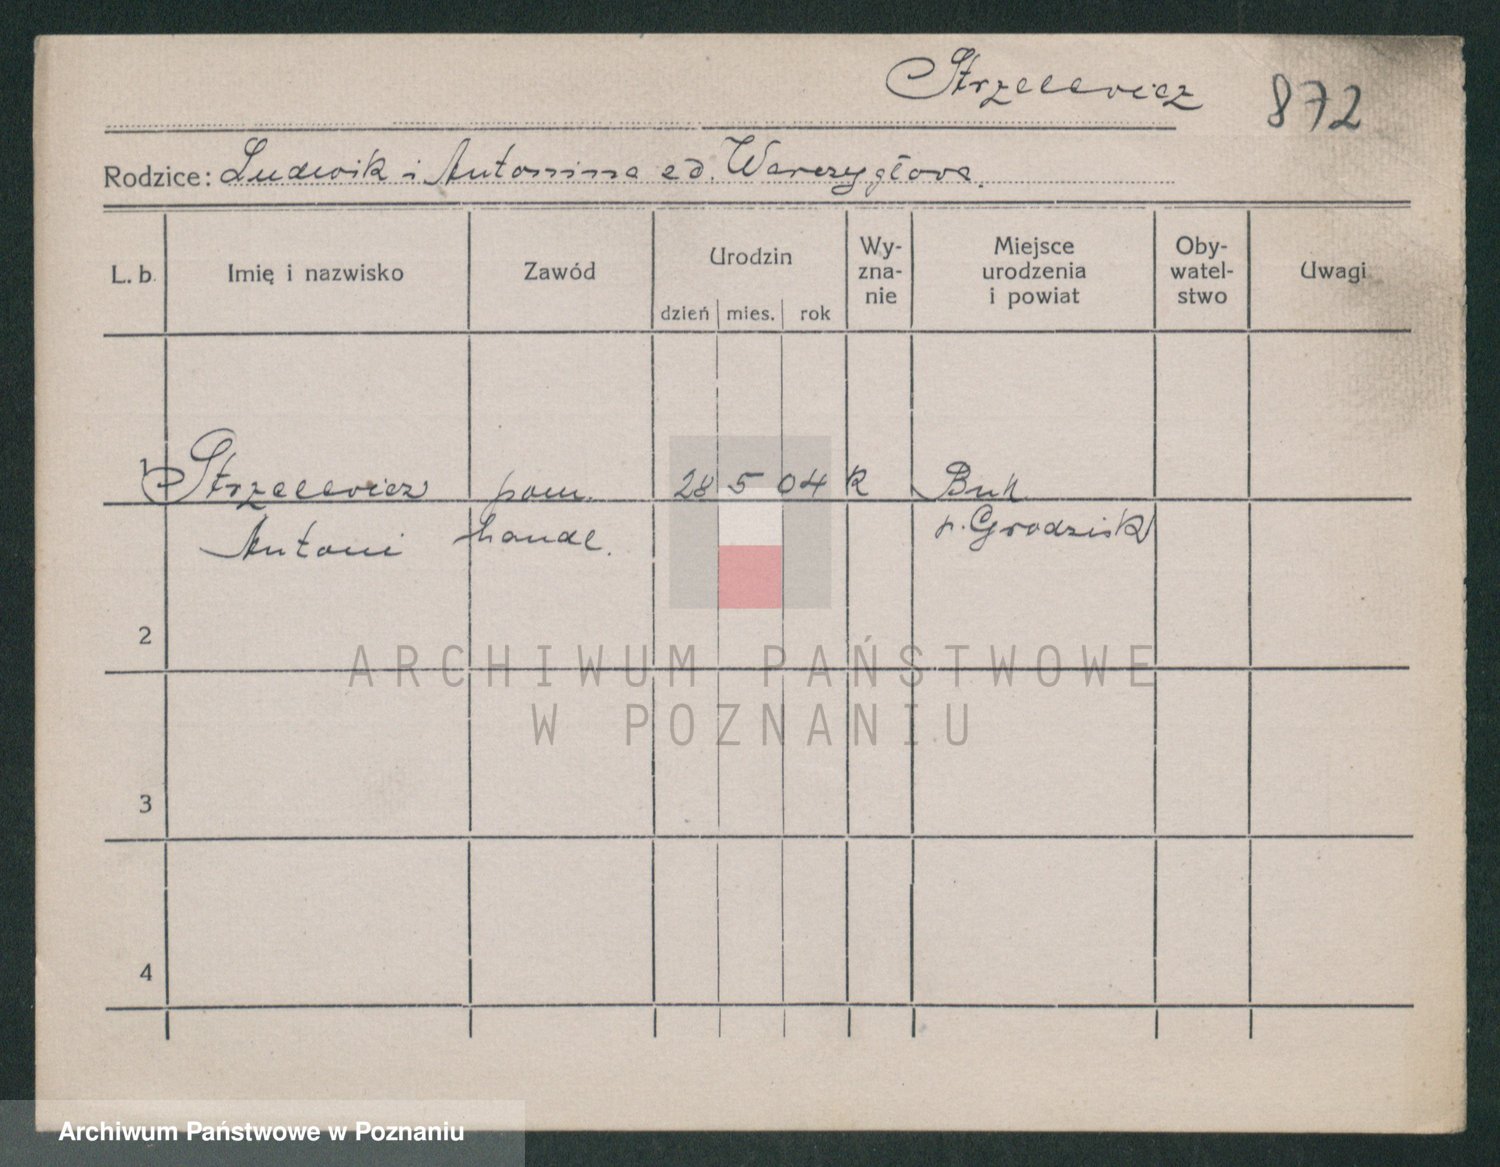 Strzelewicz 872
Rodzice: Ludwik i Antonina zd. Warczygłowa.
L. b. Imię i nazwisko Zawód Urodzin Wy-zna-nie Miejsce urodzenia i powiat Oby-watel-stwo Uwagi
dzień mies. rok
1 Strzelewicz pom. 28 5 04 R Buk
Antoni handl. p. Grodzisk
2
ARCHIWUM PAŃSTWOWE
W POZNANIU
3
4
Archiwum Państwowe w Poznaniu